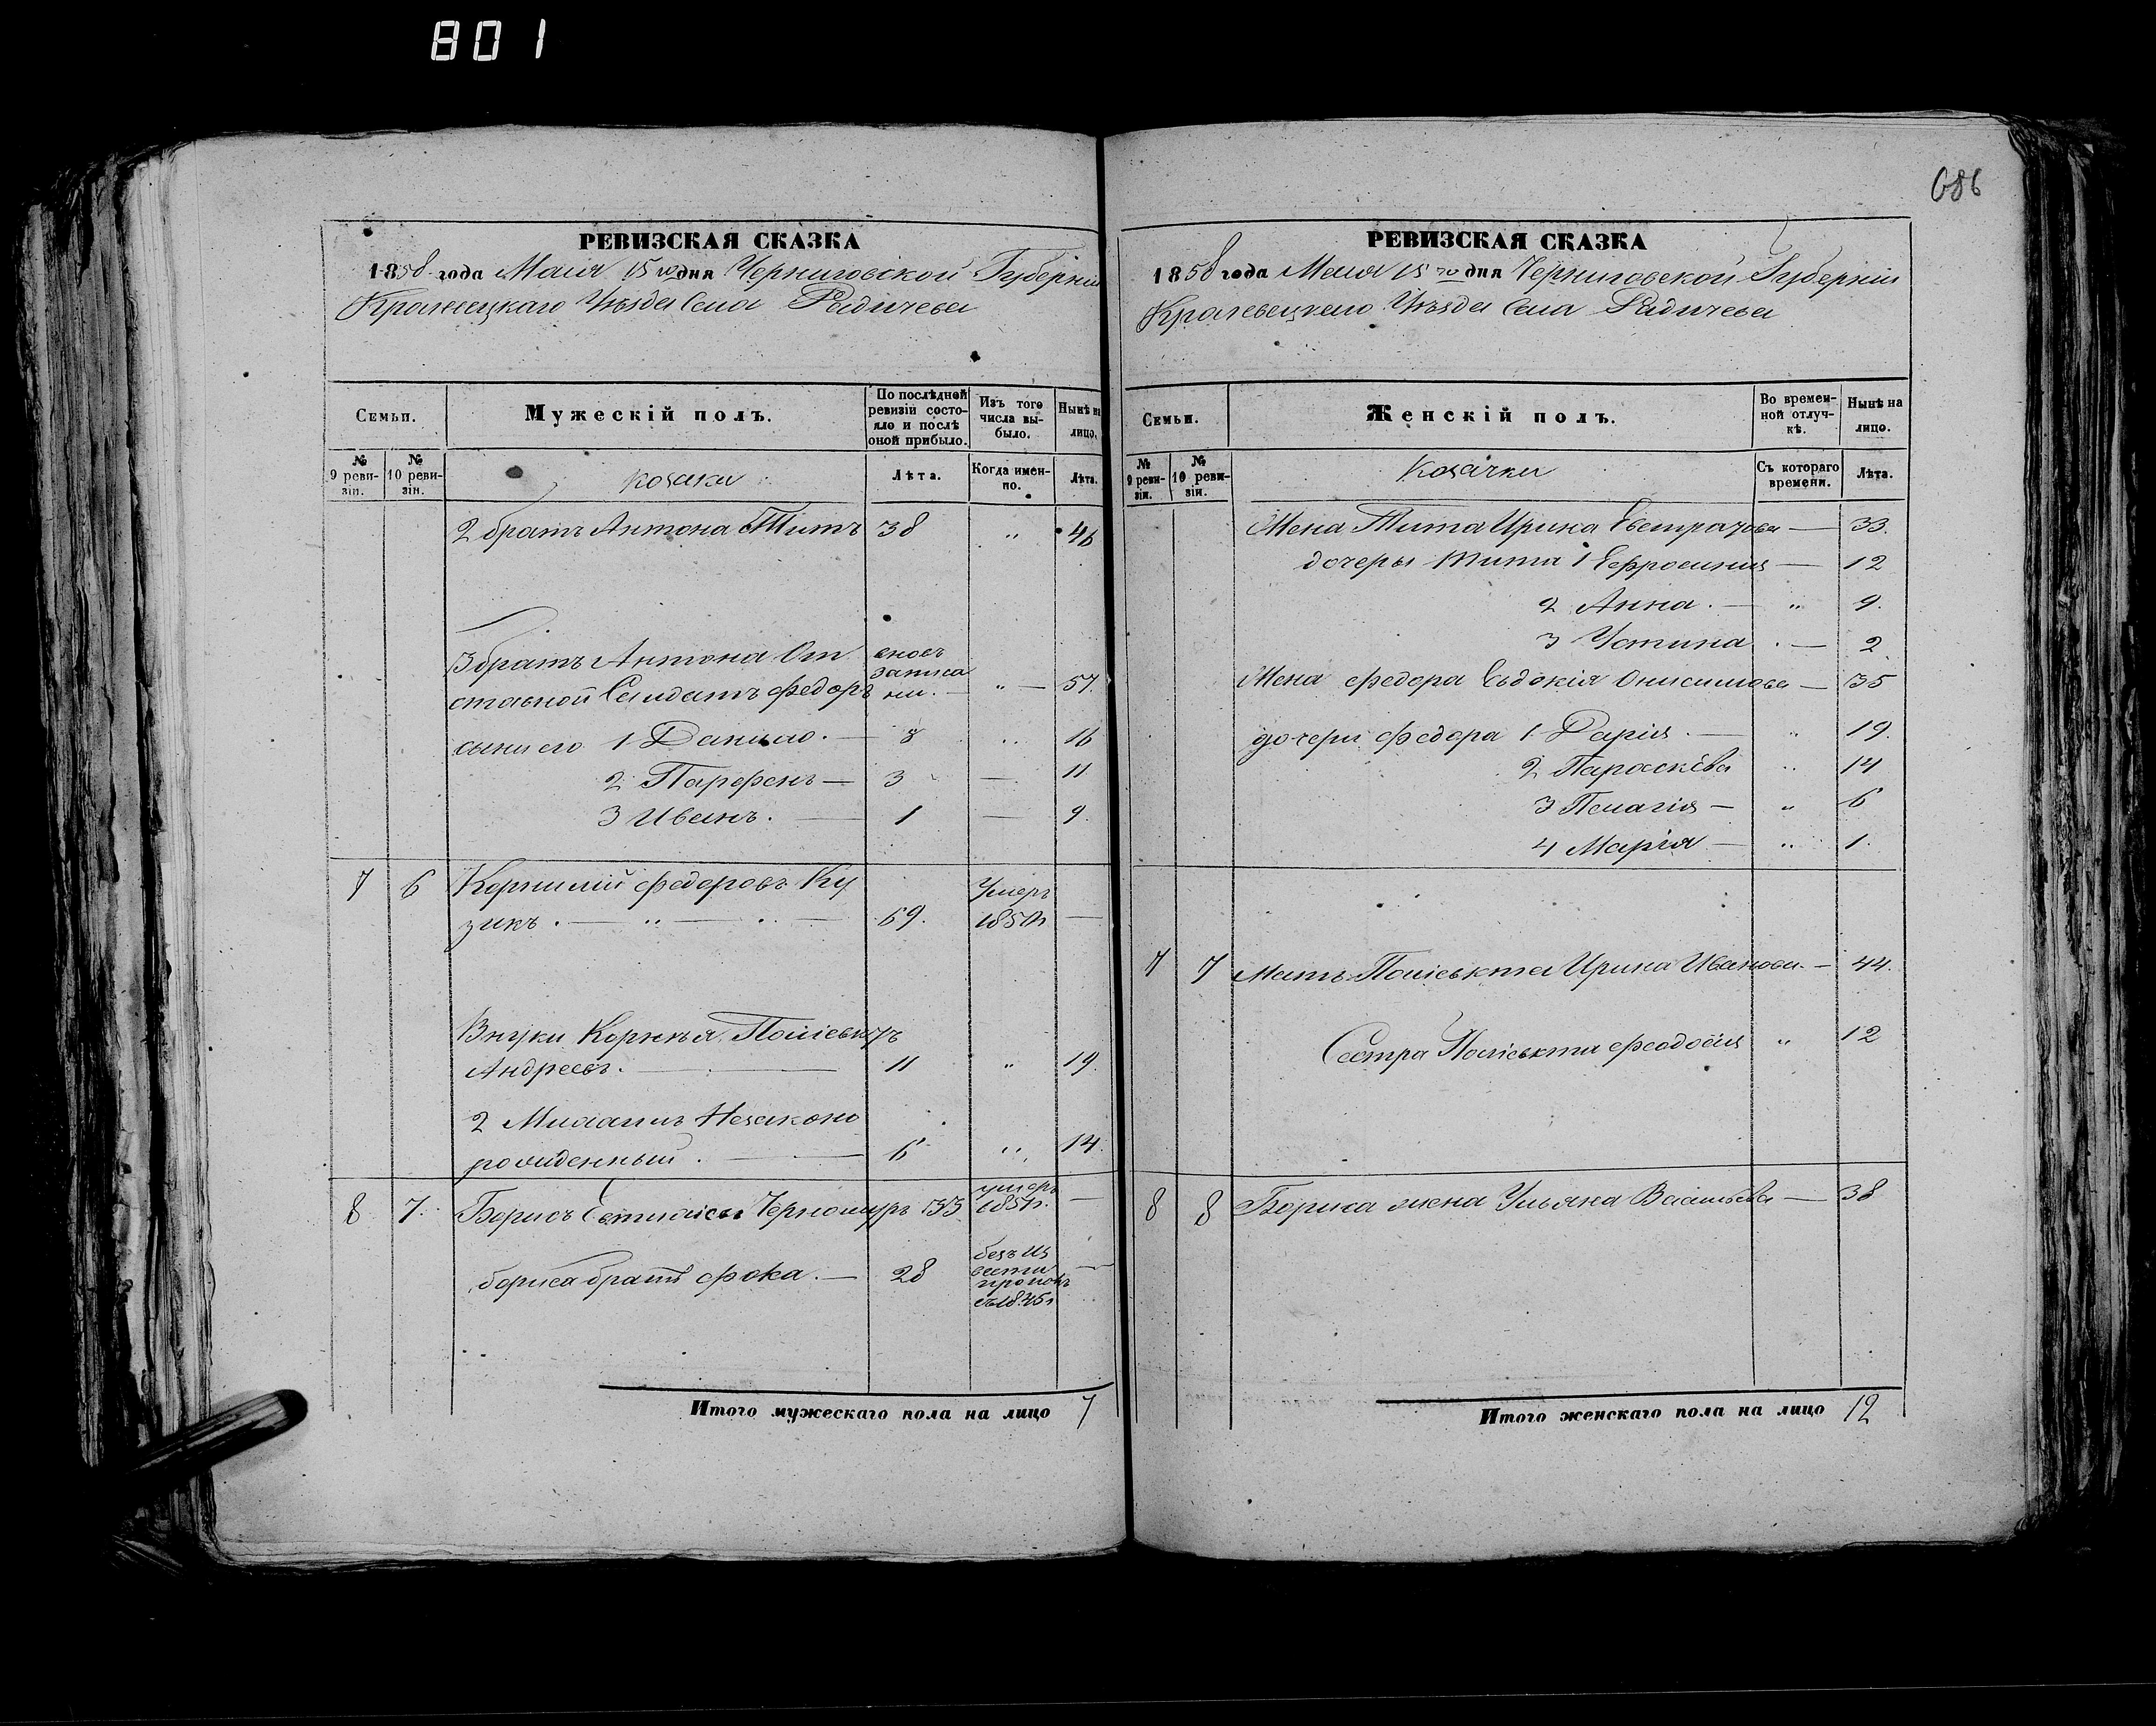 801
686
РЕВИЗСКАЯ СКАЗКА
1858 года Маія 15 го дня Черниговской Губерніи
Кролевецкаго Уѣзда Села Радичева
Семьи.
Мужескій полъ.
По послѣдней ревизіи состояло и послѣ оной прибыло.
Изъ того числа выбыло.
Нынѣ на лицо.
№ 9 ревизіи.
№ 10 ревизіи.
Козаки
Лѣта.
Когда именно.
Лѣта.
2 братъ Антона Титъ 38 " 46
3 братъ Антона От вновь
записа
ставной Салдатъ Федоръ ни. — " — 57.
сыни его 1 Данило. — 8 " 16
2 Парфенъ — 3 — 11
3 Иванъ. — 1 — 9.
7 6 Корнилій Федоровъ Ку Умеръ
зикъ. — " — " — 69. 185 —
Внуки Корнѣя
Андреевъ. — 11 " 19.
2 Незаконо
рожденный. — 6 " 14.
8 7. Борисъ Черношуръ 55 умеръ 185 —
Бориса братъ Фока. — 28 безъ из
вести
пропалъ
съ 1845 —
Итого мужескаго пола на лицо 7
РЕВИЗСКАЯ СКАЗКА
1858 года Маія 15 го дня Черниговской Губерніи
Кролевецкаго Уѣзда Села Радичева
Семьи.
Женскій полъ.
Во временной отлучкѣ.
Нынѣ на лицо.
№ 9 ревизіи.
№ 10 ревизіи.
Козачки
Съ котораго времени.
Лѣта.
Жена Тита Ирина Евстратова — 33.
дочеры Тита 1 Ефросинія — 12
2 Анна. — " 9.
3 Устина. — 2
Жена Федора Евдокія Онисимова — 35
дочери Федора 1 Дарія. — " 19.
2 Параскева " 14
3 Пелагія — " 6
4 Марія — " 1.
7 7 Мать Ирина Иванова. — 44.
Сестра Феодосія " 12
8 8 Бориса жена Ульяна Васильева — 38
Итого женскаго пола на лицо 12